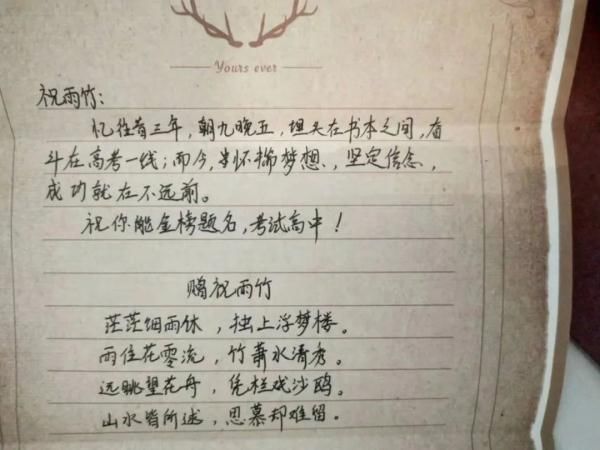 Yours ever
祝雨竹:
忆往昔三年，朝九晚五，埋头在书本之间，奋
斗在高考一线；而今，当怀揣梦想，坚定信念，
成功就在不远前。
祝你能金榜题名，考试高中！
赠祝雨竹
茫茫烟雨休，独上浮梦楼。
雨住花零流，竹萧水清秀。
远眺望花舟，凭栏戏沙鸥。
山水皆所述，思慕却难留。